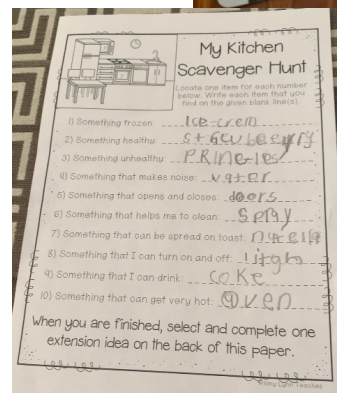 My Kitchen
Scavenger Hunt
Locate one item for each number
below. Write each item that you
find on the given blank line(s).
1) Something frozen: Ice-crem
2) Something healthy: strawbeerry
3) Something unhealthy: PRINGles
4) Something that makes noise: water
5) Something that opens and closes: doors
6) Something that helps me to clean: Spray
7) Something that can be spread on toast: nutella
8) Something that I can turn on and off: litgh
9) Something that I can drink: coke
10) Something that can get very hot: oven
When you are finished, select and complete one
extension idea on the back of this paper.
©Amy Lynn Teaches